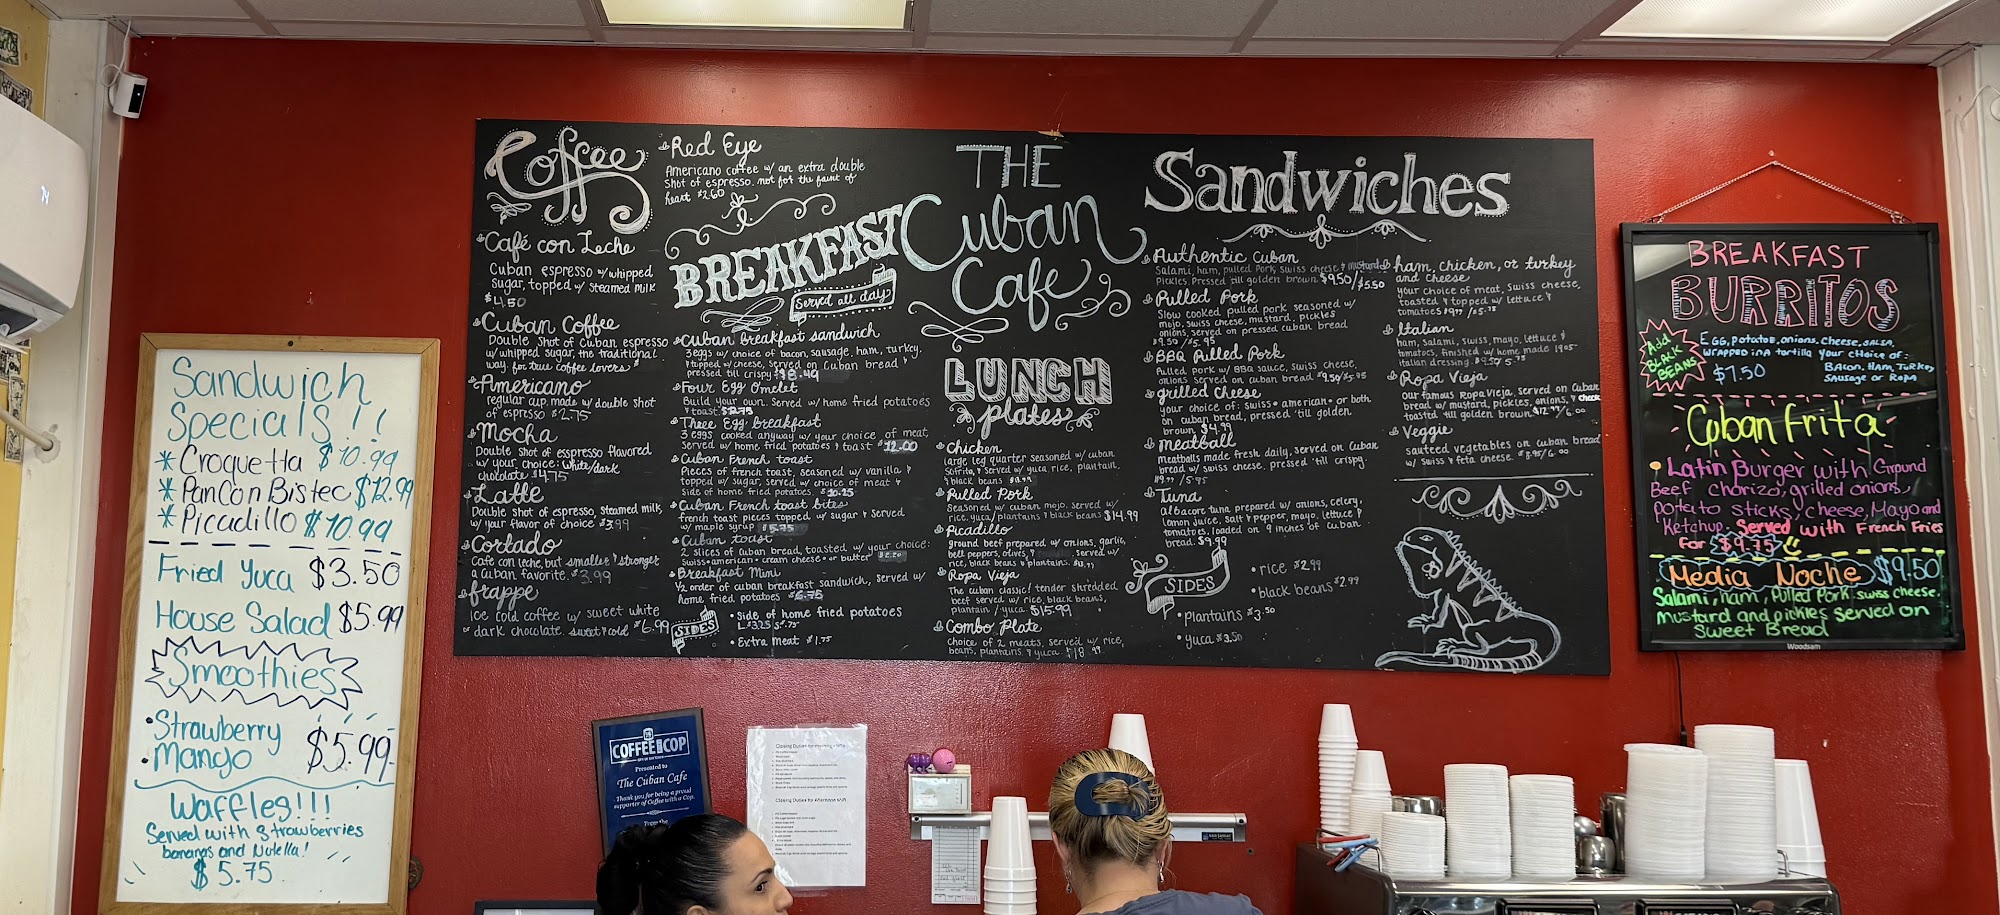 Sandwich
Specials!!
* Croquetta $10.99
* Pan Con Bistec $12.99
* Picadillo $10.99
Fried Yuca $3.50
House Salad $5.99
Smoothies
• Strawberry
• Mango $5.99
Waffles!!!
Served with strawberries
bananas and Nutella!
$5.75
Coffee
Café con Leche
Cuban espresso w/ whipped
sugar, topped w/ steamed milk
$4.50
Cuban Coffee
Double shot of Cuban espresso
w/ whipped sugar, the traditional
way for true coffee lovers
Americano
regular cup made w/ double shot
of espresso $2.75
Mocha
Double shot of espresso flavored
w/ your choice: white/dark
chocolate $4.75
Latte
Double shot of espresso, steamed milk
w/ your flavor of choice $3.99
Cortado
Café con leche, but smaller & stronger
a Cuban favorite. $3.99
frappe
ice cold coffee w/ sweet white
or dark chocolate. sweet & cold $6.99
Red Eye
Americano coffee w/ an extra double
shot of espresso. not for the faint of
heart $2.60
BREAKFAST
Served all day
Cuban breakfast sandwich
3 eggs w/ choice of bacon, sausage, ham, turkey.
& topped w/ cheese, served on Cuban bread &
pressed till crispy $8.49
Four Egg Omelet
Build your own. Served w/ home fried potatoes
& toast
Three Egg Breakfast
3 eggs cooked anyway w/ your choice of meat,
Served w/ home fried potatoes & toast 12.00
Cuban French toast
Pieces of french toast, seasoned w/ vanilla &
topped w/ sugar, served w/ choice of meat &
Side of home fried potatoes. $10.25
Cuban French toast bites
french toast pieces topped w/ sugar & served
w/ maple syrup $5.75
Cuban toast
2 slices of Cuban bread, toasted w/ your choice:
Swiss • american • cream cheese • or butter
Breakfast Mini
1/2 order of cuban breakfast sandwich, served w/
home fried potatoes $6.75
SIDES
• Side of home fried potatoes
• Extra meat $1.75
THE
Cuban
Cafe
LUNCH
plates
Chicken
large leg quarter seasoned w/ cuban
Sofrito, & served w/ yuca rice, plantain,
& black beans
Pulled Pork
Seasoned w/ cuban mojo. served w/
rice, yuca/plantains & black beans $14.99
Picadillo
ground beef prepared w/ onions, garlic,
bell peppers, olives, & served w/
rice, black beans & plantains.
Ropa Vieja
The cuban classic! tender shredded
beef served w/ rice, black beans,
plantain/yuca $15.99
Combo Plate
Choice of 2 meats, served w/ rice,
beans, plantains & yuca
Sandwiches
Authentic Cuban
Salami, ham, pulled pork, swiss cheese & mustard
pickles. Pressed 'till golden brown $9.50/$5.50
Pulled Pork
Slow cooked pulled pork seasoned w/
mojo, swiss cheese, mustard, pickles
onions, served on pressed cuban bread
$9.50/$5.95
BBQ Pulled Pork
Pulled pork w/ BBQ sauce, swiss cheese,
onions served on cuban bread $9.50/$5.95
grilled cheese
your choice of: swiss • american • or both
on cuban bread, pressed 'till golden
brown. $4.99
Meatball
meatballs made fresh daily, served on Cuban
bread w/ swiss cheese. pressed 'till crispy.
Tuna
Albacore tuna prepared w/ onions, celery,
lemon juice, salt & pepper, mayo, lettuce &
tomatoes, loaded on 9 inches of Cuban
bread. $9.99
SIDES
• rice $2.99
• black beans $2.99
• plantains $3.50
• yuca $3.50
ham, chicken, or turkey
and cheese
your choice of meat, swiss cheese,
toasted & topped w/ lettuce &
tomatoes
Italian
ham, salami, swiss, mayo, lettuce &
tomatoes, finished w/ home made
italian dressing
Ropa Vieja
Our famous Ropa Vieja, served on Cuban
bread w/ mustard, pickles, onions, & cheese
toasted till golden brown
Veggie
sauteed vegetables on cuban bread
w/ swiss & feta cheese
BREAKFAST
BURRITOS
Add
BLACK
BEANS
Egg, Potatoe, onions, cheese, salsa,
wrapped in a tortilla your choice of:
$7.50 Bacon, Ham, Turkey
Sausage or Ropa
Cuban Frita
Latin Burger with Ground
Beef chorizo, grilled onions,
potato sticks, cheese, Mayo and
Ketchup. Served with French Fries
For $9.75
Media Noche $9.50
Salami, ham, Pulled Pork, swiss cheese,
mustard and pickles served on
Sweet Bread
Woodsam
COFFEE WITH A COP
Presented to
The Cuban Cafe
Thank you for being a proud
supporter of Coffee with a Cop.
From the